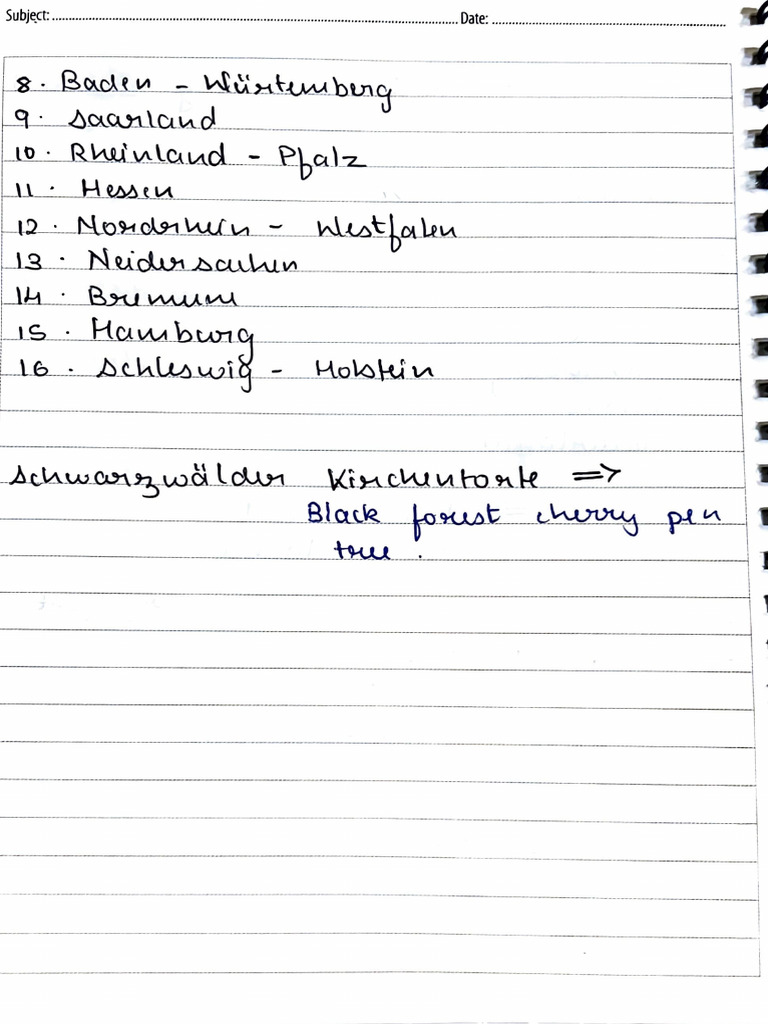 Subject: Date:
8. Baden - Würtemberg
9. Saarland
10. Rheinland - Pfalz
11. Hessen
12. Nordrhein - Westfalen
13. Neidersachen
14. Bremem
15. Hamburg
16. Schleswig - Holstein
Schwarzwälder Kirchentorte ⇒
Black forest cherry pen
tree.